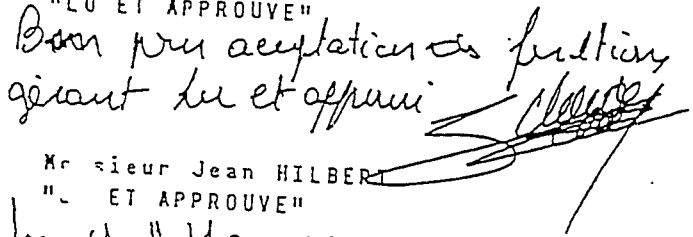 "LU ET APPROUVE"
Bon pour acceptation des fonctions
gérant Lu et approuvé
Mr sieur Jean HILBERT
" ET APPROUVE"